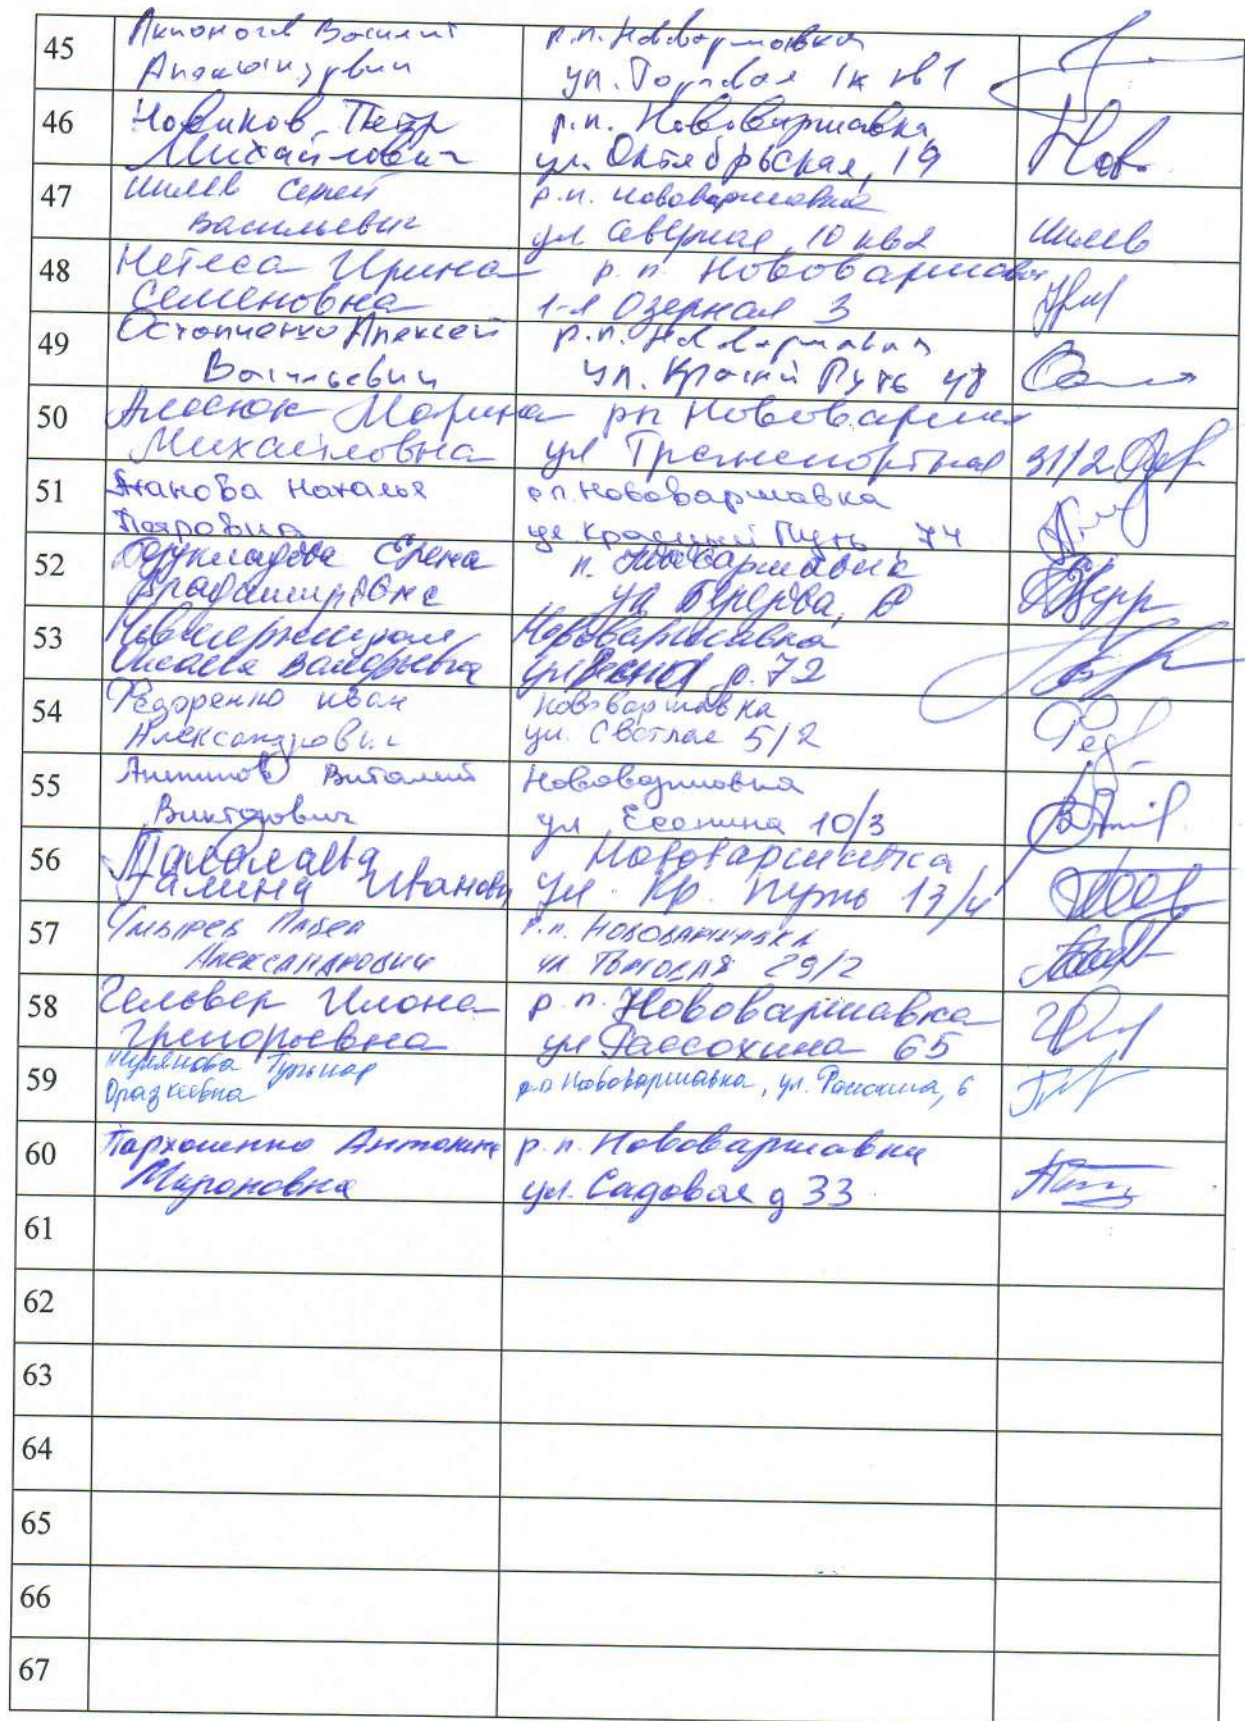 45
Василий
р.п. Нововаршавка
ул. Торговая 1к кв 1
46
Новиков Петр
Михайлович
р.п. Нововаршавка,
ул. Октябрьская, 19
Нов
47
Шилев Сергей
Васильевич
р.п. Нововаршавка
ул Северная, 10 кв 2
Шилев
48
Нетеса Ирина
Семеновна
р.п. Нововаршавка
1-я Озерная 3
49
Остапченко Алексей
Васильевич
р.п. Нововаршавка
ул. Красный Путь 48
50
Марина
Михайловна
рп Нововаршав
ул Транспортная 31/2
51
Наталья
Петровна
р.п. Нововаршавка
ул Красный Путь, 74
52
Елена
Владимировна
п. Нововаршавка
ул
53
Оксана Валерьевна
Нововаршавка
д. 72
54
Федоренко Иван
Александрович
Нововаршавка
ул. Светлая 5/2
Фед
55
Виталий
Викторович
Нововаршавка
ул Есенина 10/3
56
Галина Иванов
Нововаршавка
ул. Кр. путь 13/4
57
Чмырев Павел
Александрович
р.п. Нововаршавка
ул. 29/2
58
Гельвер Илона
Григорьевна
р.п. Нововаршавка
ул Рассохина 65
59
Гульнар
Оразкеевна
р.п Нововаршавка, ул. 6
60
Пархоменко Антонина
Мироновна
р.п. Нововаршавка
ул. Садовая д 33
61
62
63
64
65
66
67